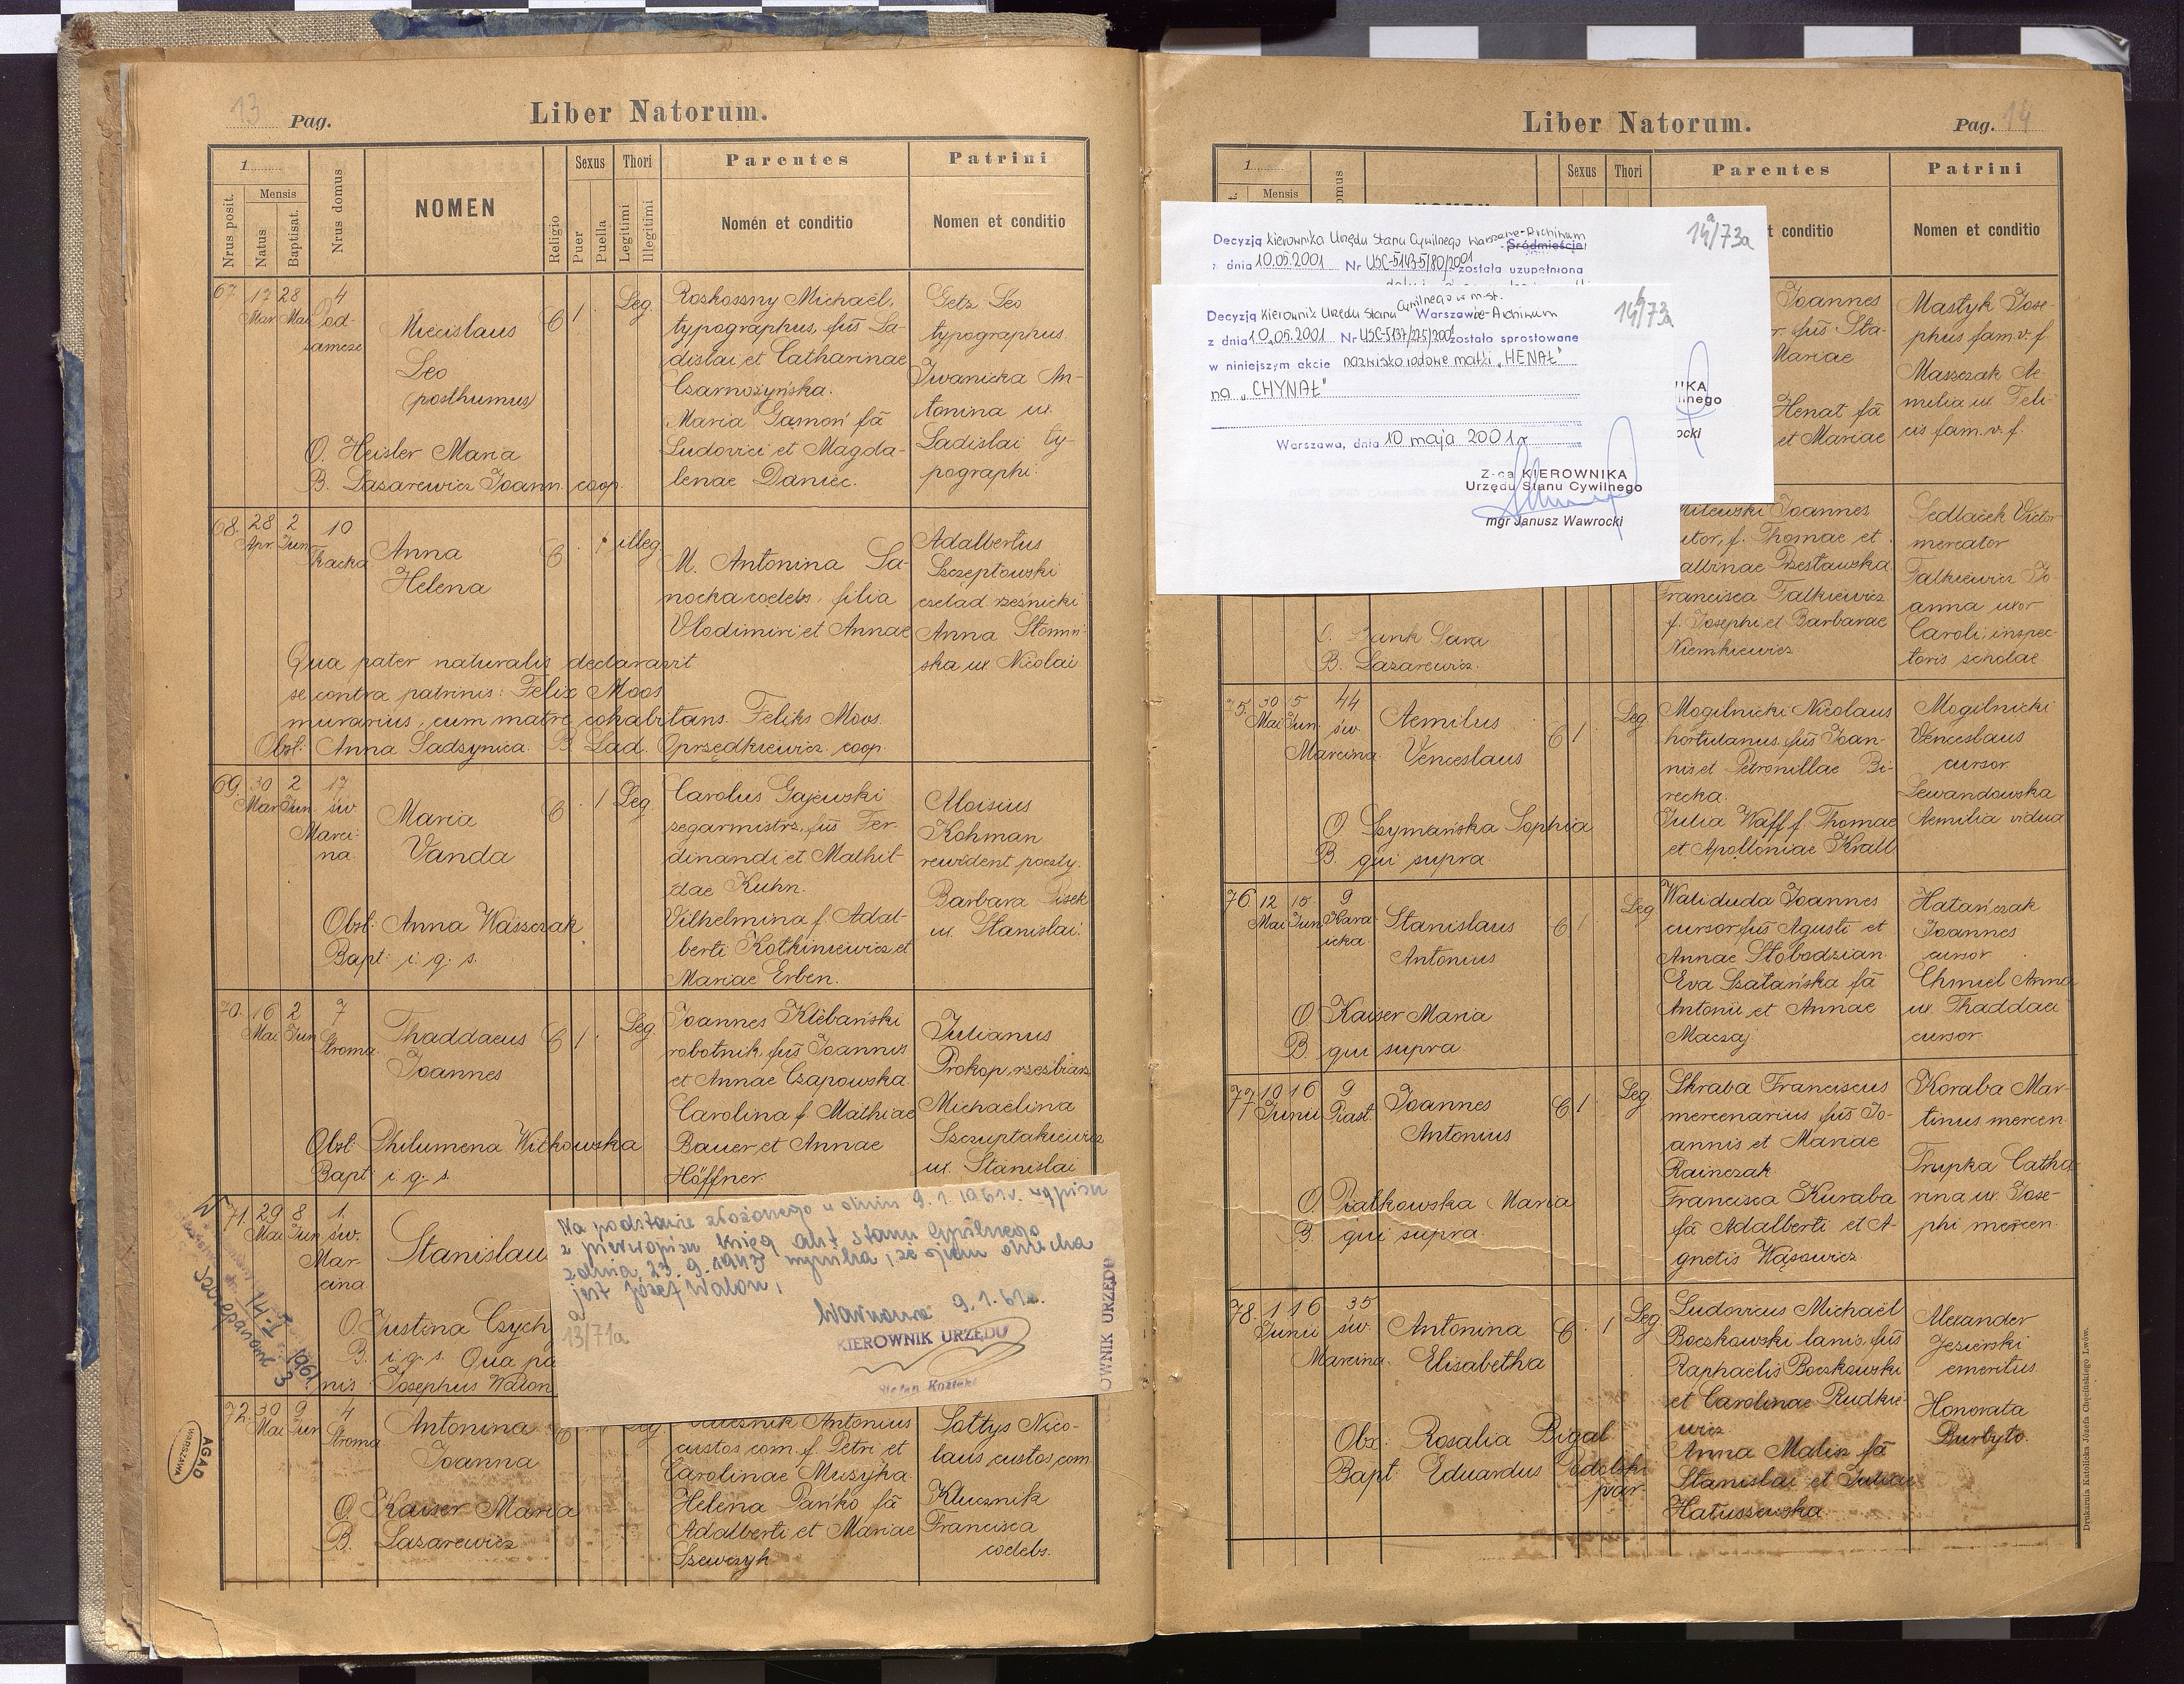 13 Pag.
Liber Natorum.
1
Nrus posit.
Mensis
Natus
Baptisat.
Nrus domus
NOMEN
Religio
Sexus
Puer
Puella
Thori
Legitimi
Illegitimi
Parentes
Nomen et conditio
Patrini
Nomen et conditio
67 17 28 4
Mar Mai Pod-
samcze
Miecislaus
Leo
(posthumus)
C 1 Leg.
O. Heisler Maria
B. Lasarewicz Joann. coop.
Roskosny Michaël,
typographus, fus La-
dislai et Catharinae
Czarnożyńska.
Maria Gamoń fa
Ludovici et Magda-
lenae Daniec.
Getz Leo
typographus.
Iwanicka An-
tonina ux.
Ladislai ty-
pographi.
68. 28 2 10
Apr. Jun. Tkacka
Anna
Helena
C 1 illeg.
M. Antonina Sa-
nocka coelebs, filia
Vlodimiri et Annae
Adalbertus
Szczeptowski
czelad. rzeźnicki
Anna Słomiń-
ska ux. Nicolai
Qua pater naturalis declaravit
se contra patrinis: Felix Moos
murarius, cum matre cohabitans. Feliks Moos.
Obst: Anna Sadzynica. B. Lad. Oprzędkiewicz coop.
69. 30 2 17
Mar Jun. św.
Marci-
na
Maria
Vanda
C 1 Leg.
Obst: Anna Wasserak
Bapt: i. q. s.
Carolus Gajewski
zegarmistrz, fus Fer-
dinandi et Mathil-
dae Kuhn.
Vilhelmina f. Adal-
berti Kotkiniewicz et
Mariae Erben.
Aloisius
Kohman
rewident poczty.
Barbara Pisek
ux. Stanislai.
70. 16 2 7
Mai Jun Stroma
Thaddaeus
Joannes
C 1 Leg.
Obst: Philumena Witkowska
Bapt: i. q. s.
Joannes Klebański
robotnik, fus Joannis
et Annae Czapowska.
Carolina f. Mathiae
Bauer et Annae
Höffner.
Julianus
Prokop, rzeźbiarz
Michaëlina
Szczuptakiewicz
ux. Stanislai
71. 29 8 1.
Mai Jun św.
Mar-
cina
Stanislau
O. Justina Czych
B. i. q. s. Qua pa
nis Josephus Walon
Na podstawie złożonego w dniu 9. 1. 1961 r. wypisu
z pierwopisu ksiąg akt stanu cywilnego
z dnia 23. 9. 1943 wynika, że ojcem dziecka
jest Józef Walon.
Warszawa 9. 1. 61 r.
a
13/71a
KIEROWNIK URZĘDU
OWNIK URZĘDU
14-I 1961
AGAD
WARSZAWA
72. 30 9 4
Mai Jun Stroma
Antonina
Joanna
C 1 Leg
O. Kaiser Maria
B. Lasarewicz
Klucznik Antonius
custos com. f. Petri et
Carolinae Muzyka.
Helena Pańko fa
Adalberti et Mariae
Szewczyk
Sołtys Nico-
laus, custos com.
Klucznik
Francisca
coelebs.
Liber Natorum.
Pag. 14
1
Mensis
omus
Sexus
Thori
Parentes
t conditio
Patrini
Nomen et conditio
14a/73a
Decyzją Kierownika Urzędu Stanu Cywilnego Warszawa-Archiwum
Śródmieście
z dnia 10.05.2001 Nr USC-5143-5/80/2001 została uzupełniona
14b/73a
Decyzją Kierownik Urzędu Stanu Cywilnego w m.st.
Warszawie-Archiwum
z dnia 10.05.2001 Nr USC-5137/225/2001 zostało sprostowane
w niniejszym akcie nazwisko rodowe matki „HENAŁ"
na „CHYNAŁ"
Warszawa, dnia 10 maja 2001 r
Z-ca KIEROWNIKA
Urzędu Stanu Cywilnego
mgr Janusz Wawrocki
IKA
ilnego
ocki
Joannes
r. fus Sta-
Mariae
Henat fa
et Mariae
Mastyk Jose-
phus fam. v. f.
Masszak Ae-
milia ux. Feli-
cis fam. v. f.
Joannes
utor, f. Thomae et
albinae Przestawska.
Francisca Falkiewicz
f. Josephi et Barbarae
Niemkiewicz.
Sedlaček Victor
mercator
Falkiewicz Jo-
anna uxor
Caroli, inspec-
toris scholae
O. Bank Sara
B. Lazarewicz.
75. 30 5 44
Mai Jun. św.
Marcina
Aemilus
Venceslaus
C 1 Leg.
O. Szymańska Sophia
B. qui supra
Mogilnicki Nicolaus
hortulanus, fus Joan-
nis et Petronillae Bi-
recka.
Julia Waff f. Thomae
et Apolloniae Krall
Mogilnicki
Venceslaus
cursor
Lewandowska
Aemilia vidua
76 12 10 9
Mai Jun Kara-
icka
Stanislaus
Antonius
C 1 Leg
O. Kaiser Maria
B. qui supra
Waliduda Joannes
cursor, fus Agusti et
Annae Słobodzian.
Eva Szatańska fa
Antonii et Annae
Maczaj
Hatańczak
Joannes
cursor
Chmiel Anna
ux. Thaddaei
cursor.
77 10 16 9
Junii Piast.
Joannes
Antonius
C 1 Leg
O. Piatkowska Maria
B. qui supra.
Skraba Franciscus
mercenarius, fus Jo-
annis et Mariae
Rainczak
Francisca Kuraba
fa Adalberti et A-
gnetis Wąsowicz
Koraba Mar-
tinus mercen.
Trupka Catha-
rina ux. Jose-
phi mercen.
78. 1 16 35
Junii św.
Marcina.
Antonina
Elisabetha
C 1 Leg
Obs. Rosalia Bigal
Bapt: Eduardus Podolski
par.
Ludovicus Michaël
Boczkowski lanio, fus
Raphaëlis Boczkowski
et Carolinae Rudkie-
wicz
Anna Malisz fa
Stanislai et Juliae
Hatuszewska
Alexander
Jezierski
emeritus
Honorata
Burbyło.
Drukarnia Katolicka Józefa Chęcińskiego Lwów.